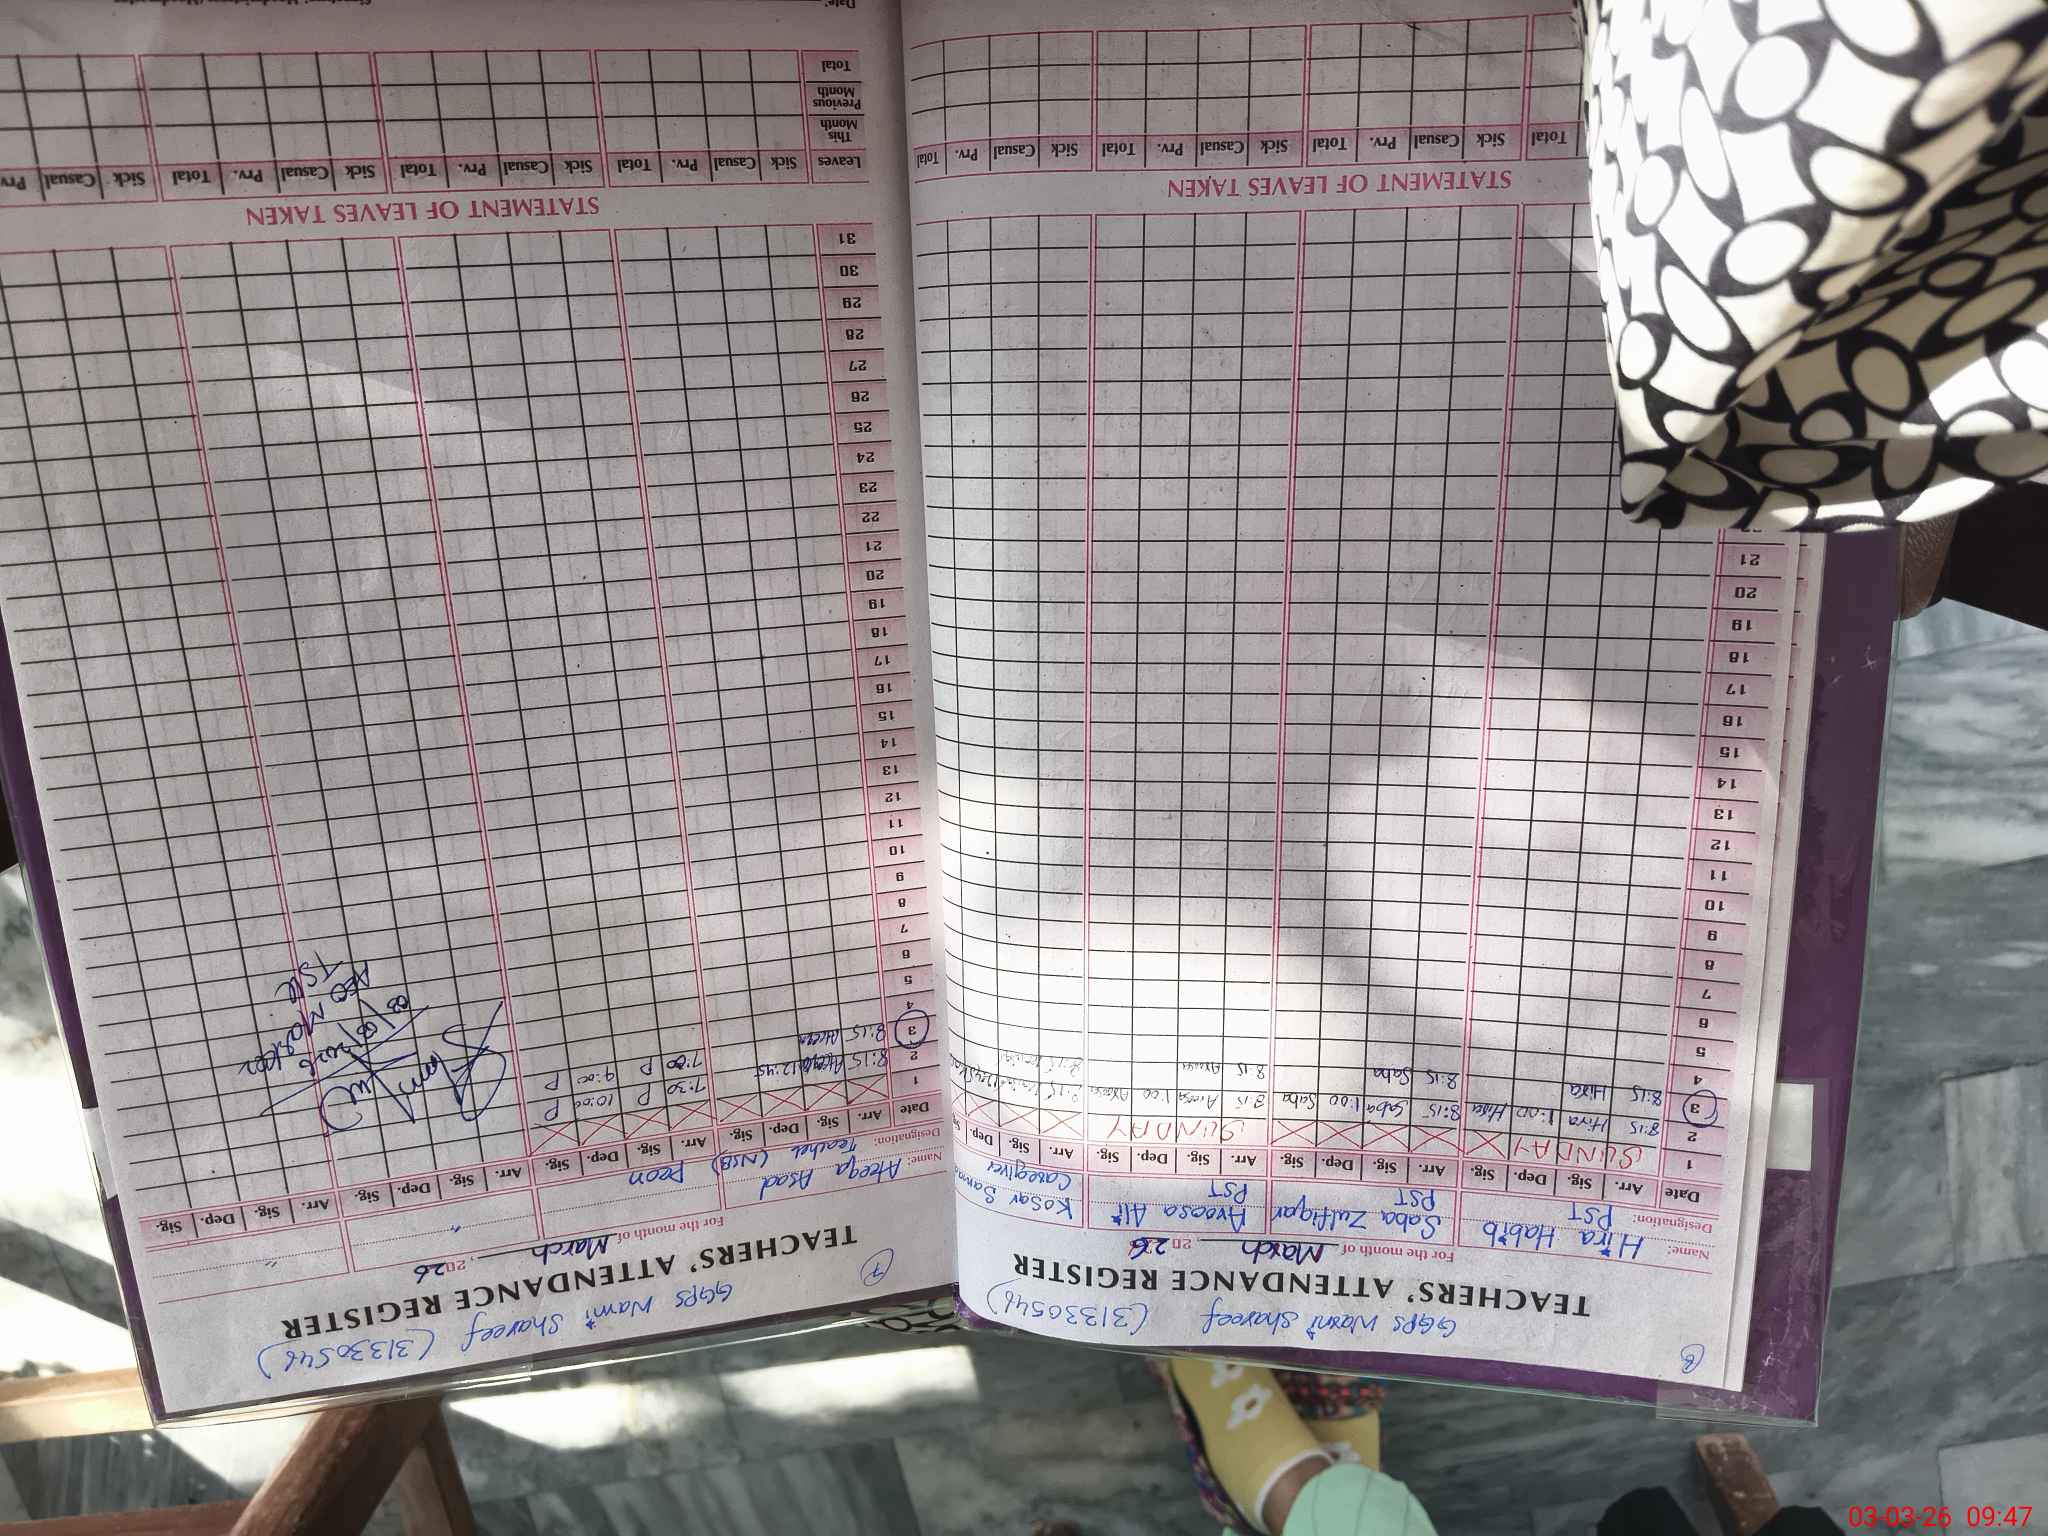 GGPS Warni Shareef (31330546)
6
TEACHERS' ATTENDANCE REGISTER
For the month of March, 2026
Name: Hira Habib Saba Zulfiqar Aroosa Ali Kosar Bano
Designation: PST PST PST Caregiver
Date Arr. Sig. Dep. Sig. Arr. Sig. Dep. Sig. Arr. Sig. Dep. Sig. Arr. Sig. Dep.
1 SUNDAY SUNDAY
2 8:15 Hira 1:00 Hira 8:15 Saba 1:00 Saba 8:15 Aroosa 1:00 Aroosa 8:15
3 8:15 Hira 8:15 Saba 8:15 Aroosa 8:15
4
5
6
7
8
9
10
11
12
13
14
15
16
17
18
19
20
21
STATEMENT OF LEAVES TAKEN
Total Sick Casual Prv. Total Sick Casual Prv. Total Sick Casual Prv. Total
GGPS Warni Shareef (31330546)
7
TEACHERS' ATTENDANCE REGISTER
For the month of March, 2026
Name: Ateeqa Asad
Designation: Teacher (NSB) Peon
Date Arr. Sig. Dep. Sig. Arr. Sig. Dep. Sig. Arr. Sig. Dep. Sig. Arr. Sig. Dep. Sig.
1
2 8:15 Ateeqa 12:45 7:30 P 10:00 P
3 8:15 Ateeqa 7:00 P 9:00 P
4
5
6
7
8
9
10
11
12
13
14
15
16
17
18
19
20
21
22
23
24
25
26
27
28
29
30
31
03/03/2026
AEO Markaz
TSK
STATEMENT OF LEAVES TAKEN
Leaves Sick Casual Prv. Total Sick Casual Prv. Total Sick Casual Prv. Total Sick Casual Prv.
This Month
Previous Month
Total
Date:
03-03-26 09:47